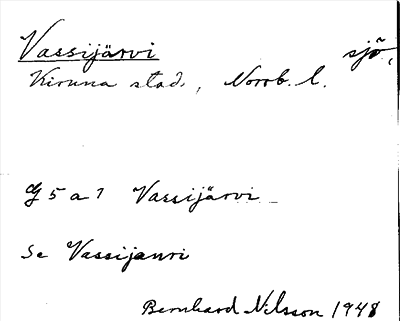 Vassijärvi sjö,
Kiruna stad, Norrb. l.
G 5 a 1 Vassijärvi
Se Vassijauri
Bernhard Nilsson 1948